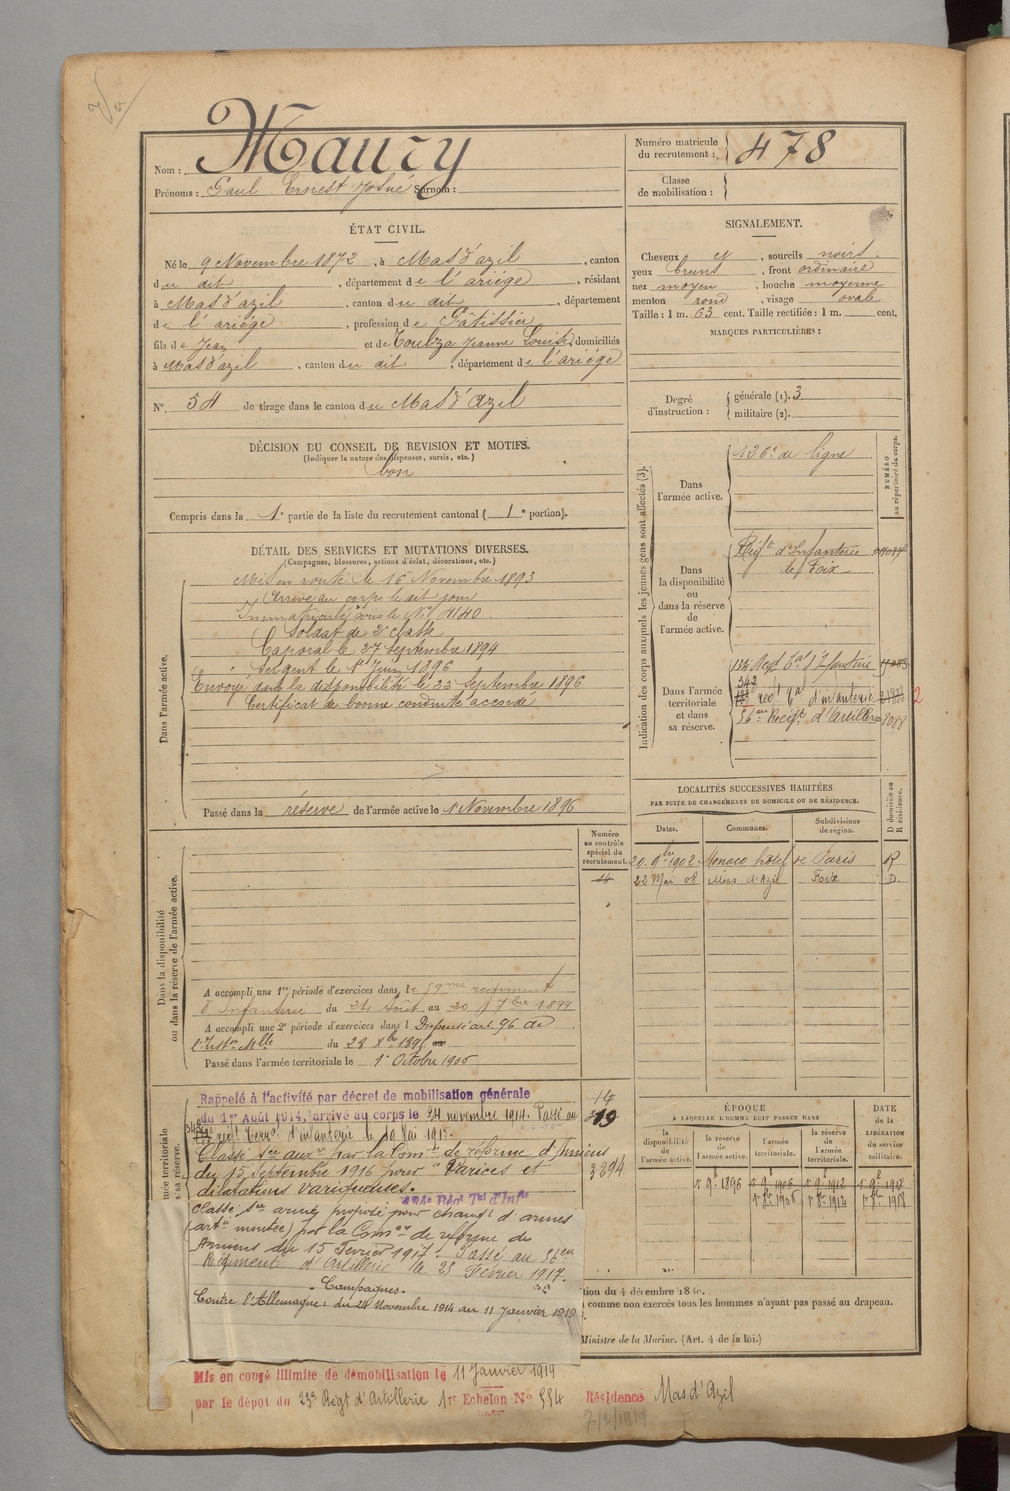 Nom : Maury
Prénoms : Paul Ernest Josué Surnom :
Numéro matricule du recrutement : 478
Classe de mobilisation :
ÉTAT CIVIL.
Né le 9 Novembre 1872, à Mas d'azil, canton
du dit, département de l'ariége, résidant
à Mas d'azil, canton du dit, département
de l'ariége, profession de Pâtissier
fils de Jean et de Toulza Jeanne Louise, domiciliés
à Mas d'azil, canton du dit, département de l'ariége
N° 54 de tirage dans le canton du Mas d'Azil
SIGNALEMENT.
Cheveux et, sourcils noirs.
yeux bruns, front ordinaire
nez moyen, bouche moyenne
menton rond, visage ovale
Taille : 1 m. 63 cent. Taille rectifiée : 1 m. cent.
MARQUES PARTICULIÈRES :
Degré d'instruction : générale (1). 3
militaire (2).
DÉCISION DU CONSEIL DE REVISION ET MOTIFS.
(Indiquer la nature des dispenses, sursis, etc.)
bon
Compris dans la 1e partie de la liste du recrutement cantonal ( 1e portion).
DÉTAIL DES SERVICES ET MUTATIONS DIVERSES.
(Campagnes, blessures, actions d'éclat, décorations, etc.)
Dans l'armée active.
Mis en route le 16 Novembre 1893
Arrivé au corps le dit jour
Immatriculé sous le N° 4140
Soldat de 2e classe
Caporal le 27 septembre 1894
Sergent le 1er Juin 1896
Envoyé dans la disponibilité le 23 Septembre 1896
Certificat de bonne conduite accordé
Passé dans la réserve de l'armée active le 1 Novembre 1896
Indication des corps auxquels les jeunes gens sont affectés (3).
NUMÉRO au répertoire du corps.
Dans l'armée active.
126e de ligne
Dans la disponibilité ou dans la réserve de l'armée active.
Régt d'Infanterie de Foix
Dans l'armée territoriale et dans sa réserve.
134 Regt Tal d'Infanterie
342
regt Tal d'infanterie 2
56eme Régt d'Artillerie 8088
LOCALITÉS SUCCESSIVES HABITÉES
PAR SUITE DE CHANGEMENTS DE DOMICILE OU DE RÉSIDENCE.
D domicile ou R résidence.
Dates. Communes. Subdivisions de région.
20 9bre 1902 Monaco hôtel de Paris R
22 Mai 08 Mas d'Azil Foix D.
Numéro au contrôle spécial du recrutement.
Dans la disponibilité ou dans la réserve de l'armée active.
A accompli une 1re période d'exercices dans le 59me regiment
d'Infanterie du 24 Août au 20 7bre 1899
A accompli une 2e période d'exercices dans l Dispensé art. 96 de
l'Inston Mlle du 28 Xbre 1895
Passé dans l'armée territoriale le 1er Octobre 1906
Rappelé à l'activité par décret de mobilisation générale
du 1er Août 1914, arrivé au corps le 24 novembre 1914. Passé au
regt Terral d'infanterie le 10 Mai 1915.
Classé Sce auxre par la Comon de réforme d'Amiens
du 15 Septembre 1916 pour "Varices et
dilatations variqueuses.
14
19
3394
Classé Sce armé, proposé pour changt d'armes
(artie montée) par la Comon de réforme de
Amiens du 15 Fevrier 1917. Passé au 56eme
Régiment d'Artillerie le 25 Février 1917.
Campagnes.
Contre l'Allemagne : du 24 Novembre 1914 au 11 Janvier 1919
ÉPOQUE
A LAQUELLE L'HOMME DOIT PASSER DANS
DATE DE LA LIBÉRATION du service militaire.
la disponibilité de l'armée active. la réserve de l'armée active. l'armée territoriale. la réserve de l'armée territoriale.
1er 9bre 1896
tion du 4 décembre 18
comme non exercés tous les hommes n'ayant pas passé au drapeau.
Ministre de la Marine. (Art. 4 de la loi.)
Mis en congé illimité de démobilisation le 11 Janvier 1919
par le dépôt du 23e Régt d'Artillerie 1er Echelon N° 554 Résidence Mas d'Azil